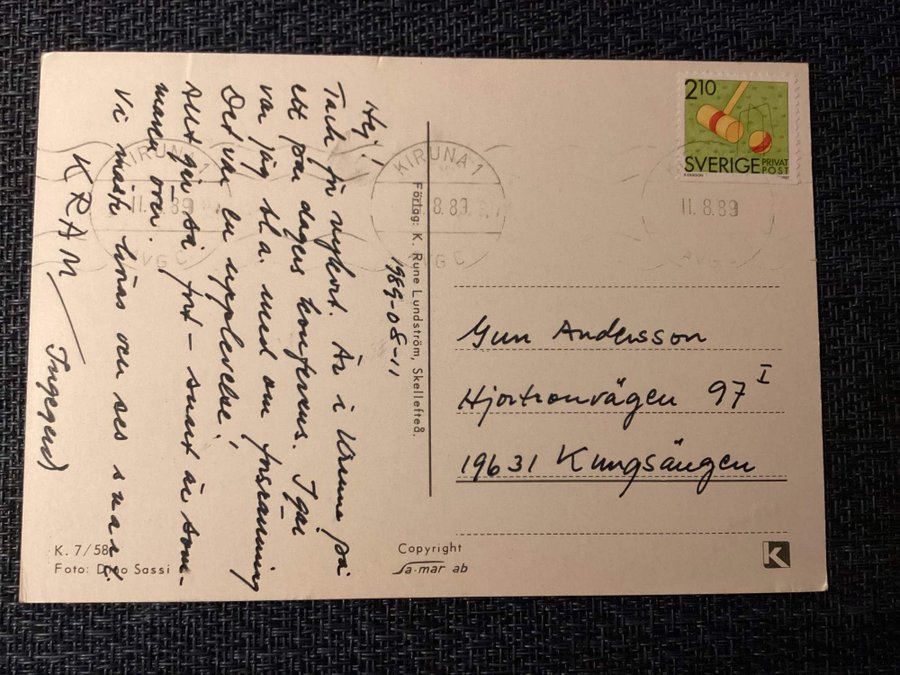 Hej!
1989-08-11
Tack för vykort. Är i Kiruna på
ett par dagars konferens. Igår
var jag bl.a. med om forsränning
Det var en upplevelse!
Allt går så fort – snart är som-
maren över.
Vi måste höras och ses snart.
KRAM / Ingegerd
K. 7/58
Foto: Dino Sassi
Förlag: K. Rune Lundström, Skellefteå.
Copyright
Sa-mar ab
KIRUNA 1
11.8.89
AVG C
KIRUNA 1
11.8.89
AVG C
11.8.89
AVG C
210
SVERIGE PRIVAT
POST
Gun Andersson
Hjortronvägen 97 I
19631 Kungsängen
K